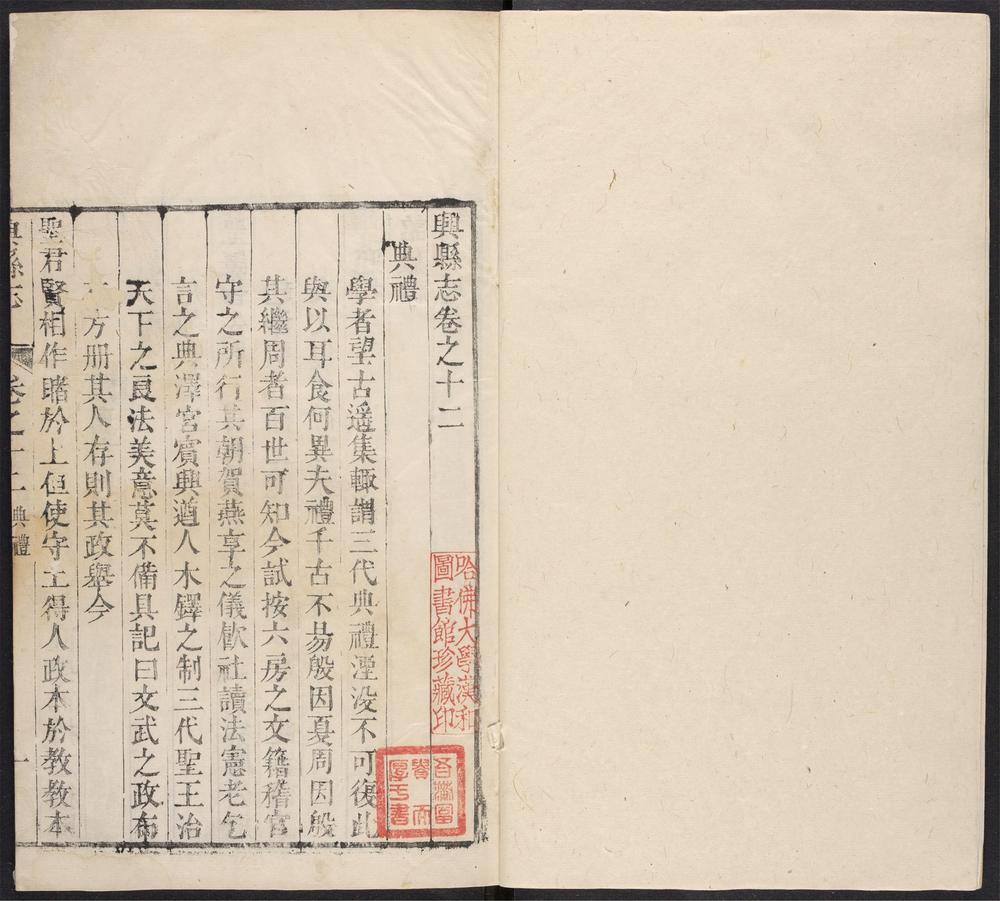 興縣志卷之十二
典禮
學者望古遥集輙謂三代典禮湮没不可復此
與以耳食何異夫禮千古不易殷因夏周因殷
其繼周者百世可知今試按六房之文籍稽官
守之所行其朝賀燕享之儀飮社讀法憲老乞
言之典澤宮賓興遒人木鐸之制三代聖王治
天下之良法美意莫不備具記曰文武之政布
方册其人存則其政舉今
聖君賢相作睹於上但使守土得人政本於教教本
興縣志 卷之十二 典禮 一
哈佛大學漢和
圖書館珍藏印